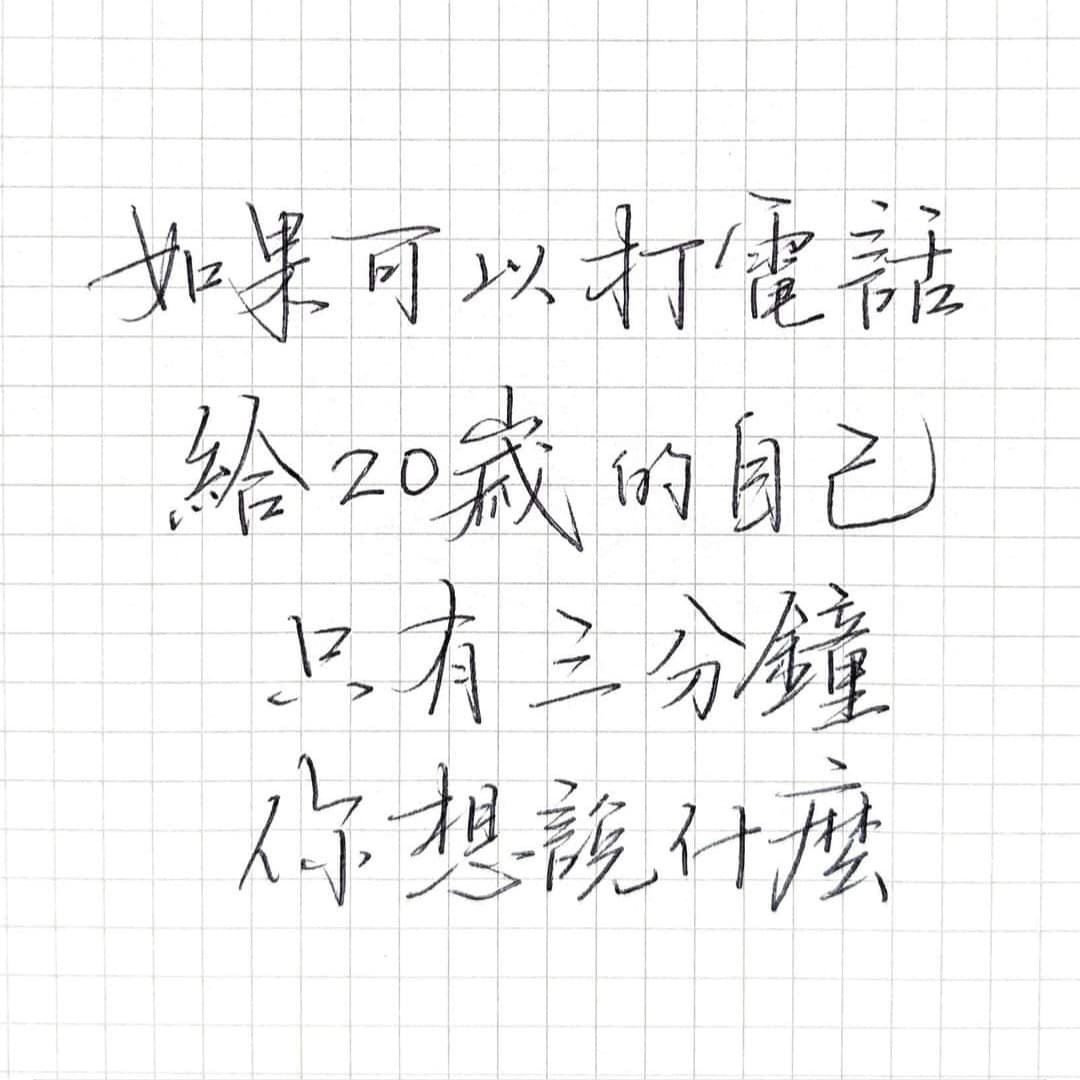 如果可以打電話
給20歲的自己
只有三分鐘
你想說什麼